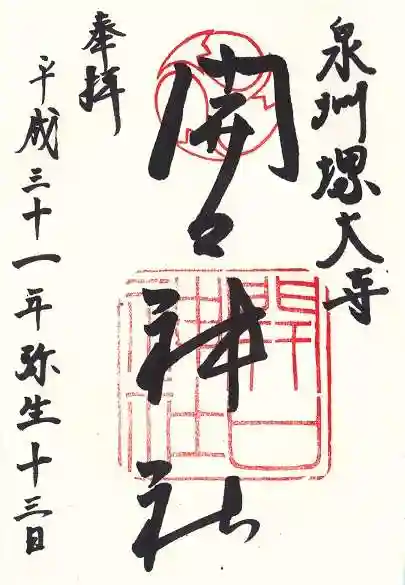 泉州堺大寺
開口神社
奉拝
平成三十一年弥生十三日
開口
神社